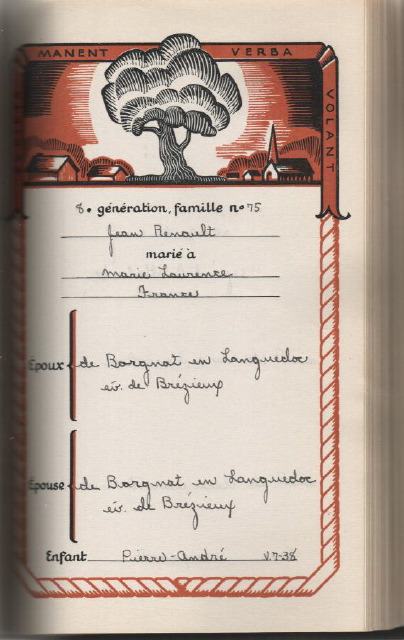 MANENT VERBA
VOLANT
8. génération, famille no 75
Jean Renault
marié à
Marie Laurence
France
Époux de Borgnat en Languedoc
év. de Brézieux
Épouse de Borgnat en Languedoc
év. de Brézieux
Enfant Pierre-André V.7-38